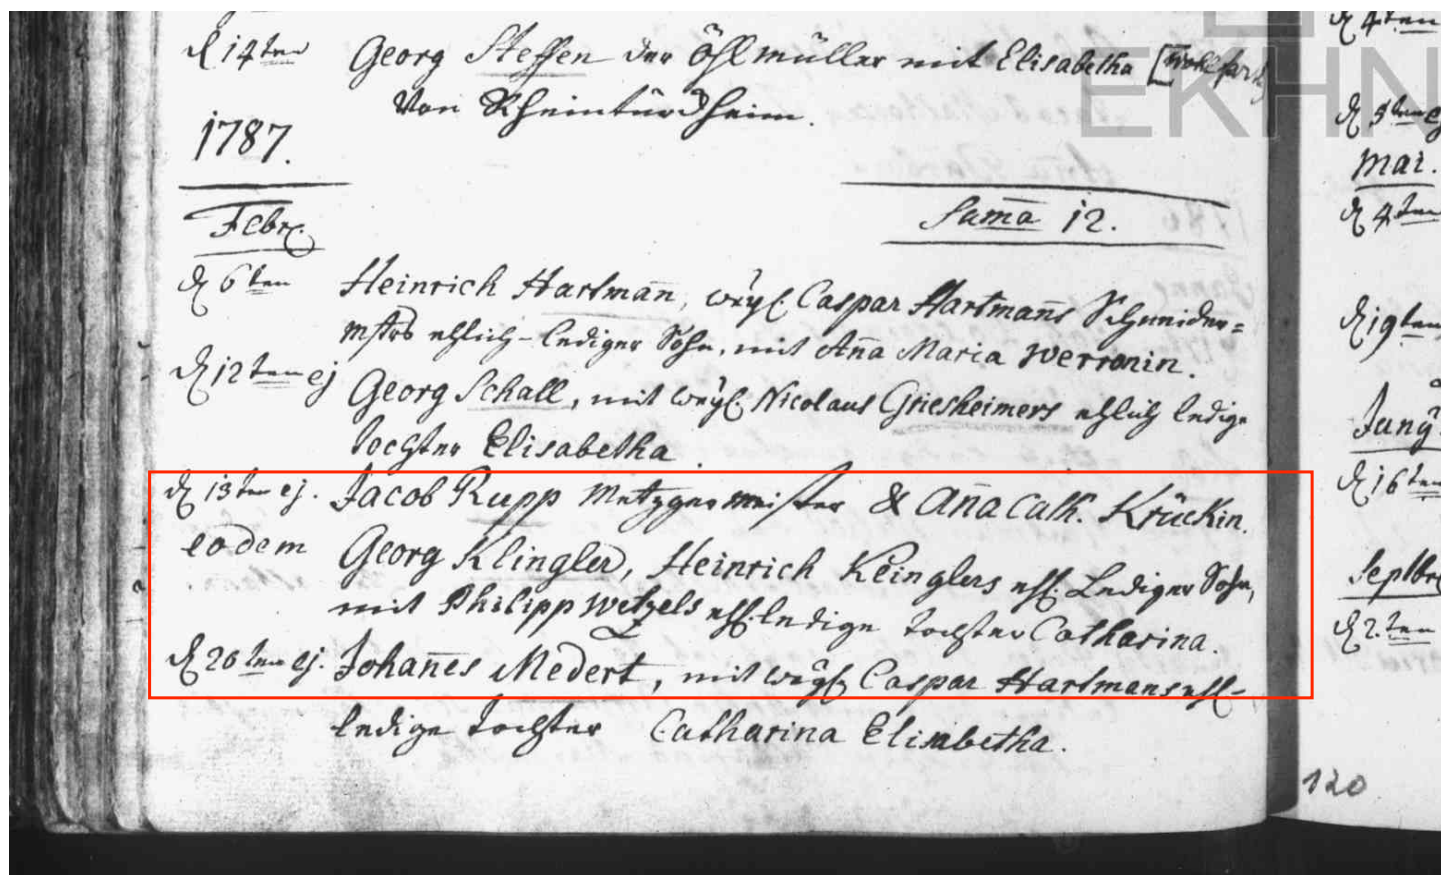 d 14ten Georg Steffen der Öhlmüller mit Elisabetha [Wohlfart]
von Rheintürckheim.
1787.
Febr. Sum̄a 12.
d 6ten Heinrich Hartman̄, weyl. Caspar Hartman̄s Schneider=
mstrs ehlich-lediger Sohn, mit An̄a Maria Werronin.
d 12ten ej Georg Schall, mit weyl. Nicolaus Griesheimers ehlich ledige
tochter Elisabetha
d 13ten ej. Jacob Rupp Metzgermeister & An̄a Cath. Krückin.
eodem Georg Klingler, Heinrich Klinglers ehl. Lediger Sohn,
mit Philipp Wetzels ehl. ledige tochter Catharina.
d 26ten ej. Johan̄es Medert, mit weyl. Caspar Hartmans ehl-
ledige tochter Catharina Elisabetha.
EKHN
d 4ten
d 5ten ej
Mai.
d 4ten
d 19ten
Juny
d 16ten
Septbr
d 2.ten
120